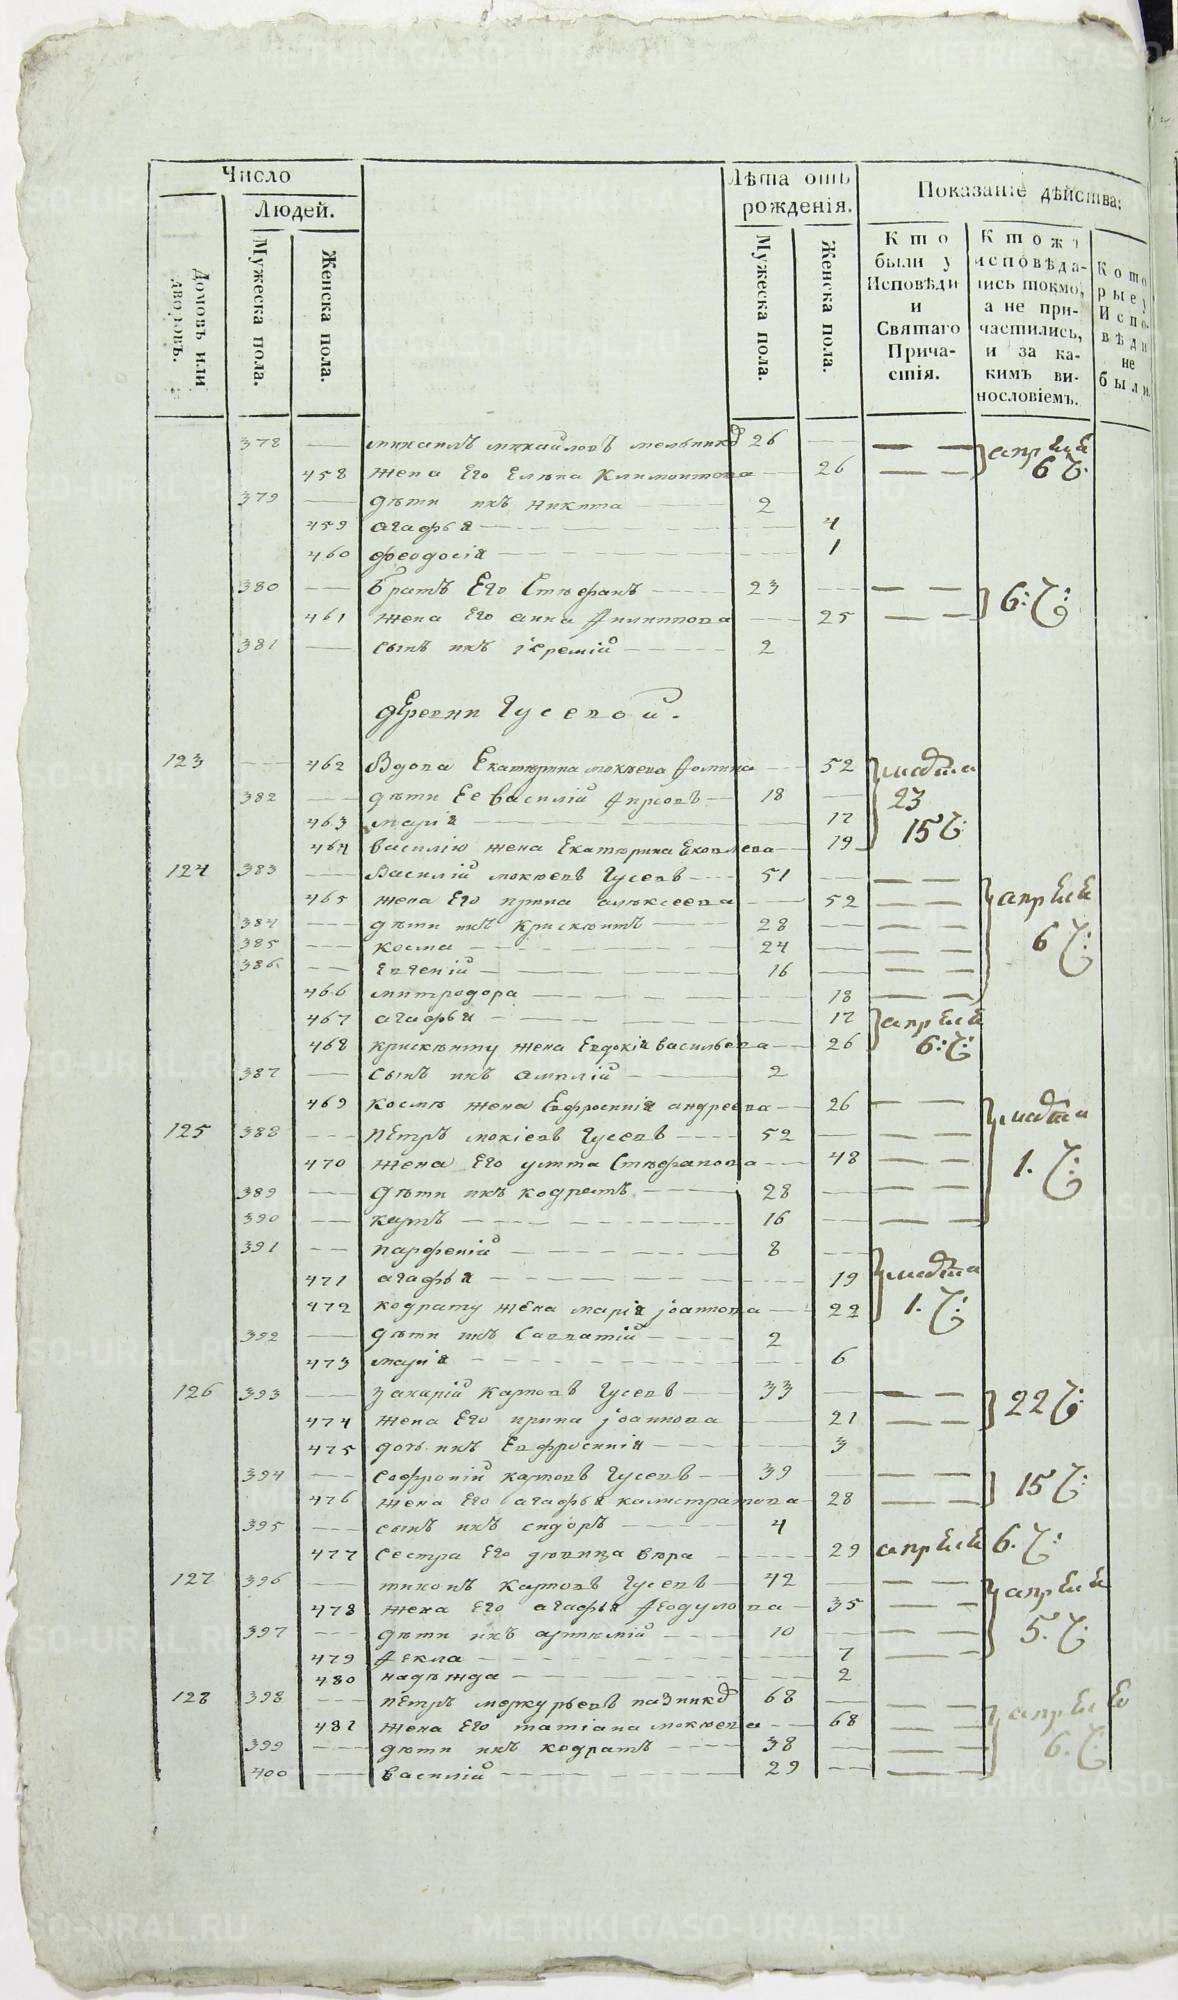 Число
Людей.
Домовъ или дворовъ.
Мужеска пола.
Женска пола.
Лѣта отъ рожденія.
Мужеска пола.
Женска пола.
Показаніе дѣйства:
Кто были у Исповѣди и Святаго Причастія.
Кто жъ исповѣдались токмо, а не причастились, и за какимъ винословіемъ.
Которые у Исповѣди не были.
378 михаилъ михайловъ мельнико 26 апрѣля
458 жена Его Елѣна Климонтова 26 6 Ч:
379 дѣти ихъ никита 2
459 агафья 4
460 феодосія 1
380 братъ Его Стѣфанъ 23 6: Ч:
461 жена Его анна Филиппова 25
381 сынъ ихъ іеремій 2
дЕревни Гусевой.
123 462 Вдова Екатѣрина мокѣева Фомина 52 марта
382 дѣти Ее василій Фирсовъ 18 23
463 марія 17 15 Ч:
464 василію жена Екатѣрина Яковлева 19
124 383 Василій мокѣевъ Гусевъ 51
465 жена Его ирина алѣксеева 52 апрѣля
384 дѣти ихъ крискѣнтъ 28
385 косма 24 6 Ч:
386 Евгеній 16
466 митродора 18
467 агафья 17 апрѣля
468 крискѣнту жена Евдокія васильева 26 6: Ч:
387 сынъ ихъ амплій 2
469 космѣ жена Евфросинія андреева 26 марта
125 388 Петръ мокіевъ Гусевъ 52
470 жена Его улита Стѣфанова 48 1. Ч:
389 Дѣти ихъ кодратъ 28
390 карпъ 16
391 парфеній 8
471 агафья 19 марта
472 кодрату жена марія іоаннова 22 1. Ч:
392 дѣти ихъ Савватій 2
473 марія 6
126 393 захарій карповъ Гусевъ 33 22 Ч:
474 жена Его ирина іоаннова 21
475 дочь ихъ Евфросинія 3
394 софроній карповъ Гусевъ 39 15 Ч:
476 жена Его агафья калистратова 28
395 сынъ ихъ сидоръ 4
477 сестра Его дѣвица вѣра 29 апрѣля 6. Ч:
127 396 тихонъ карповъ Гусевъ 42 апрѣля
478 жена Его агафья Феодулова 35
397 дѣти ихъ артѣмій 10 5. Ч:
479 Фекла 7
480 надѣжда 2
128 398 пЕтръ меркурьевъ 68 апрѣля
481 жена Его татіана мокѣева 68
399 дѣти ихъ кодратъ 38 6. Ч:
400 василій 29